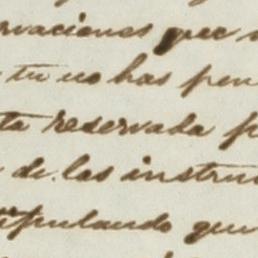 rvaciones que
tu no has pen
ta reservada p
de las instru
tipulando que